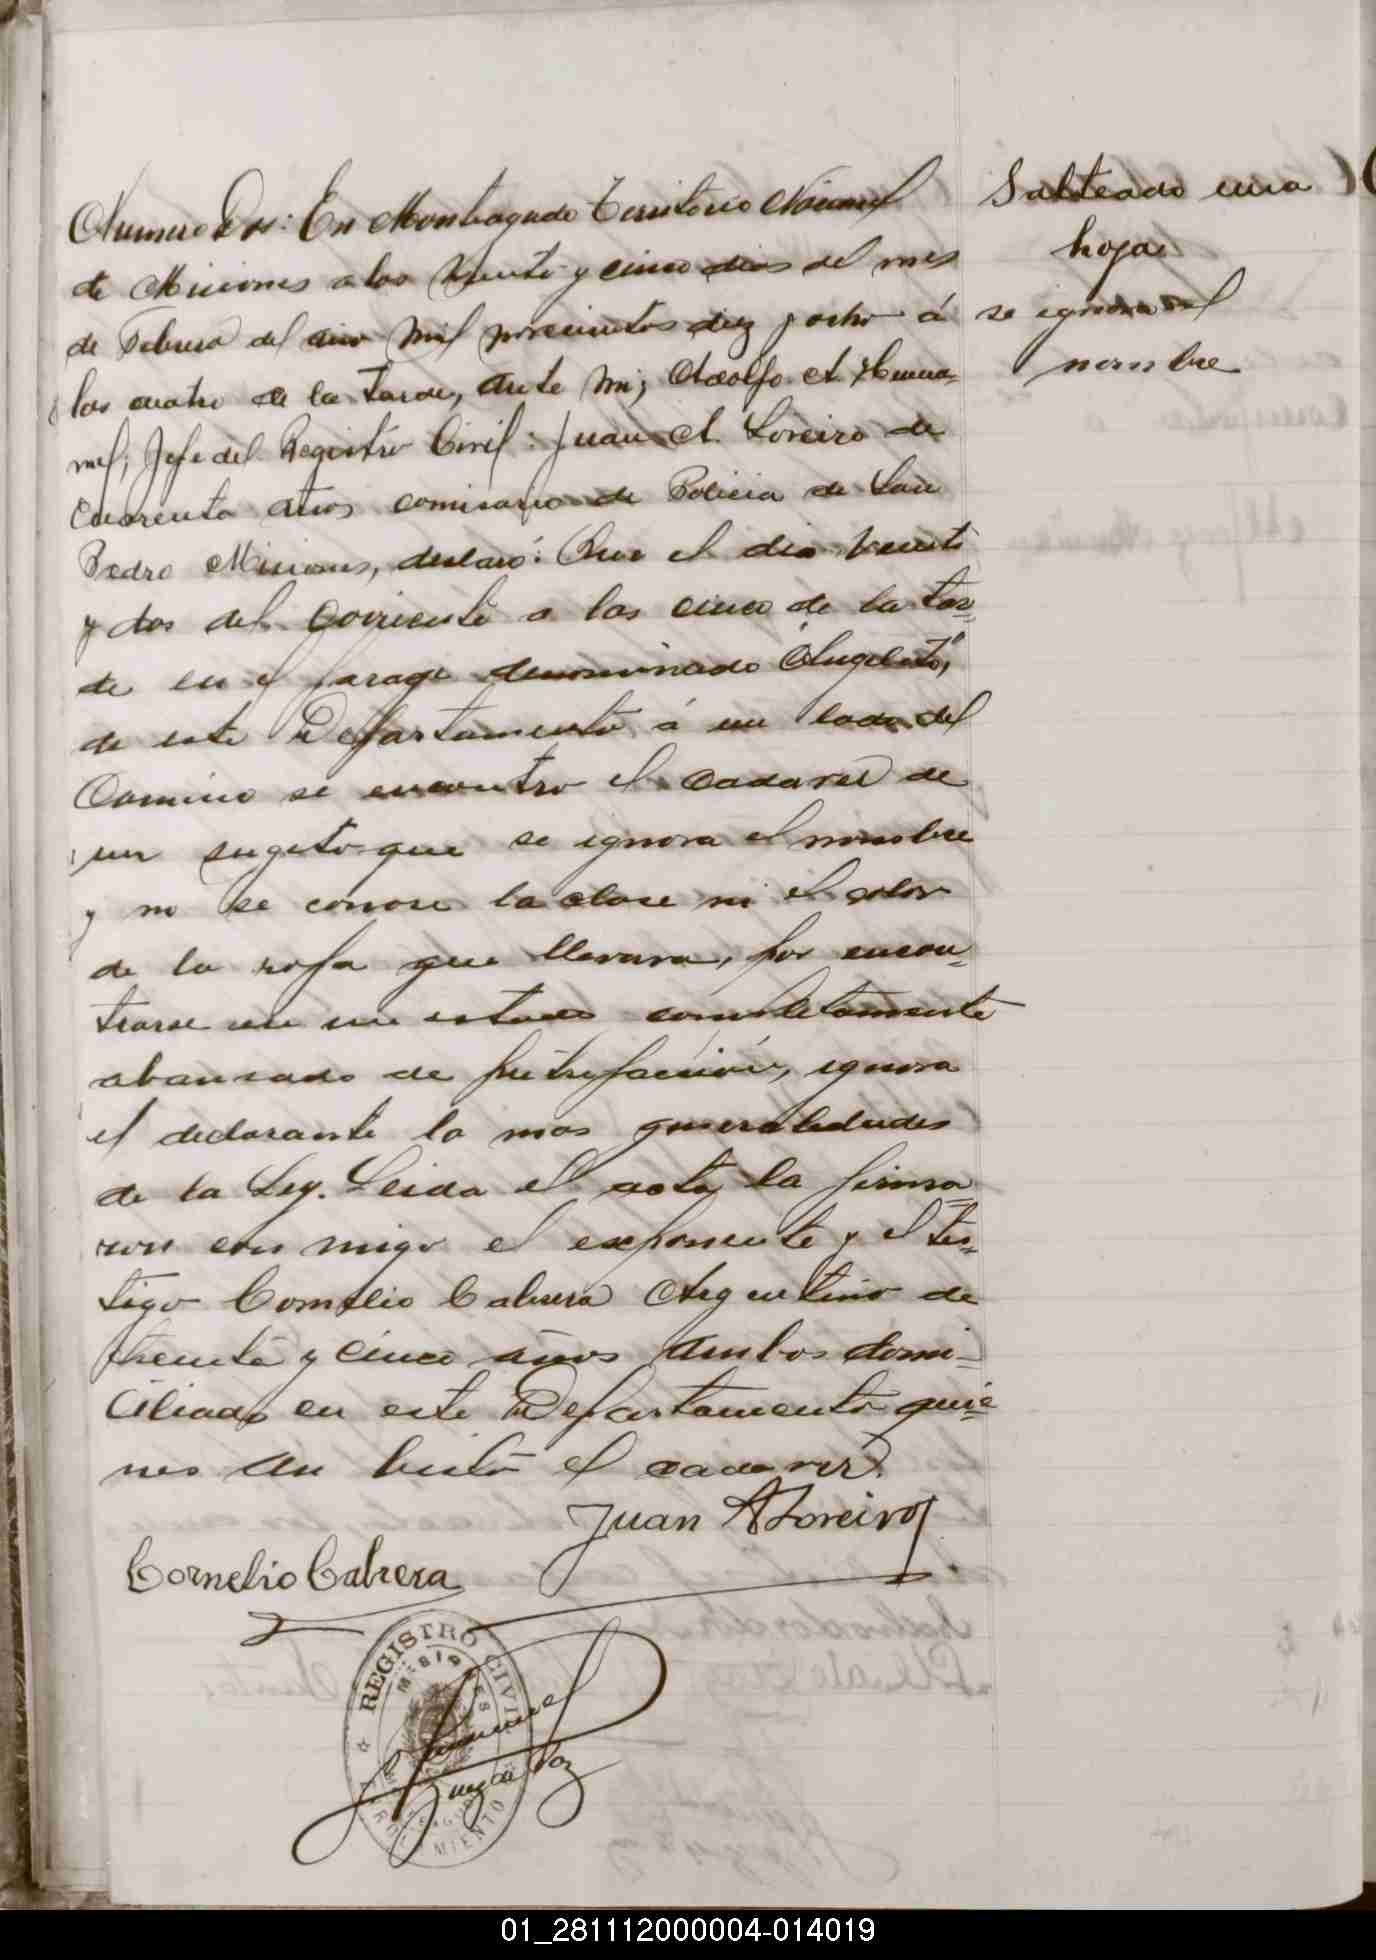 Numero Dos: En Monteagudo Territorio Nacional
de Misiones a los veinte y cinco dias del mes
de Febrero del año mil novecientos diez y ocho á
las cuatro de la tarde, ante mi, Adolfo A.
Jefe del Registro Civil: Juan A. Loreiro de
cuarenta años comisario de Policia de San
Pedro Misiones, declaró: Que el dia veinte
y dos del corriente a las cinco de la tar-
de en el parage denominado
de este Departamento á un lado del
Camino se encontro el cadaver de
un sugeto que se ignora el nombre
y no se conose la clase ni el color
de la ropa que llevava, por encon-
trarse en un estado completamente
abansado de putrefación, ignora
el declarante la mas generaledades
de la Ley. Leida el acta la firma-
ron con migo el exponente y el tes-
tigo Cornelio Cabrera Argentino de
treinta y cinco años ambos domi-
ciliado en este Departamento quie-
nes an visto el cadaver.
Juan A Loreiro
Cornelio Cabrera
REGISTRO CIVIL
MISIONES
Juez de Paz
Salteado una
hoja
se ignora el
nombre
01_281112000004-014019